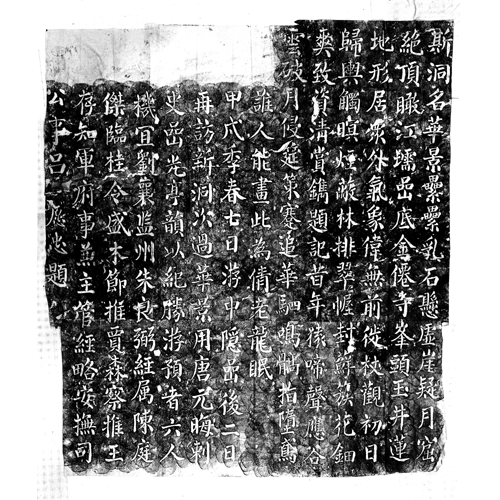 斯洞名華景纍纍乳石懸虛崖疑月窟
絶頂瞰江壖嵒底會僊寺峯頭玉井蓮
地形居衆外氣象僅無前從校觀初日
歸輿觸暝烟敵林排翠幄封蘚蔟花鈿
爽致資清賞鐫題記昔年猿啼聲應谷
雲破月侵筵策蹇追華駟鳴鶻指墮鳶
誰人能畫此為倩老龍眠
甲戌季春七日游中隱嵒後二日
再訪新洞次過華景用唐元晦刺
史嵒光亭韻以紀勝游預者六人
機宜劉襄監州朱良弼經属陳庭
傑臨桂令盛本節推賈森察推王
存知軍府事兼主管經略安撫司
公事呂愿忠題